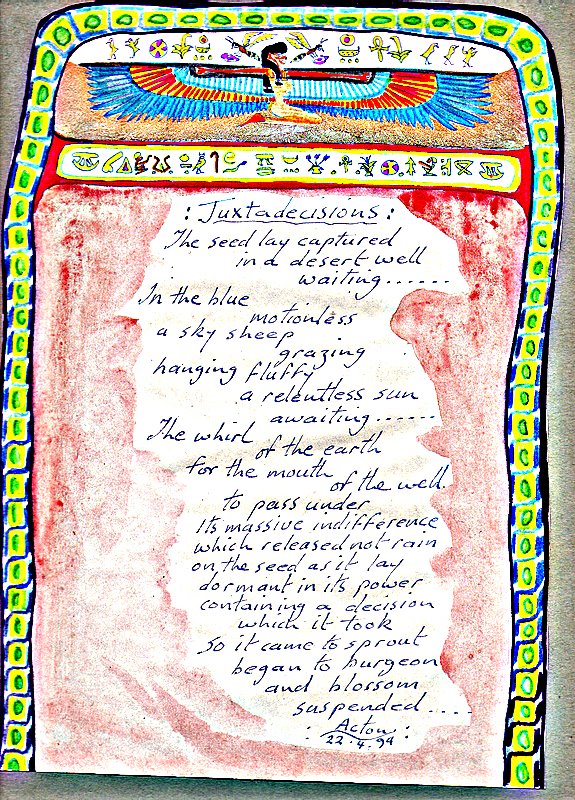 : Juxtadecisions :
The seed lay captured
in a desert well
waiting.......
In the blue
motionless
a sky sheep
grazing
hanging fluffy
a relentless sun
awaiting.......
The whirl
of the earth
for the mouth
of the well.
to pass under
its massive indifference
which released not rain
on the seed as it lay
dormant in its power
containing a decision
which it took
So it came to sprout
began to burgeon
and blossom
suspended....
: Acton :
22.4.94